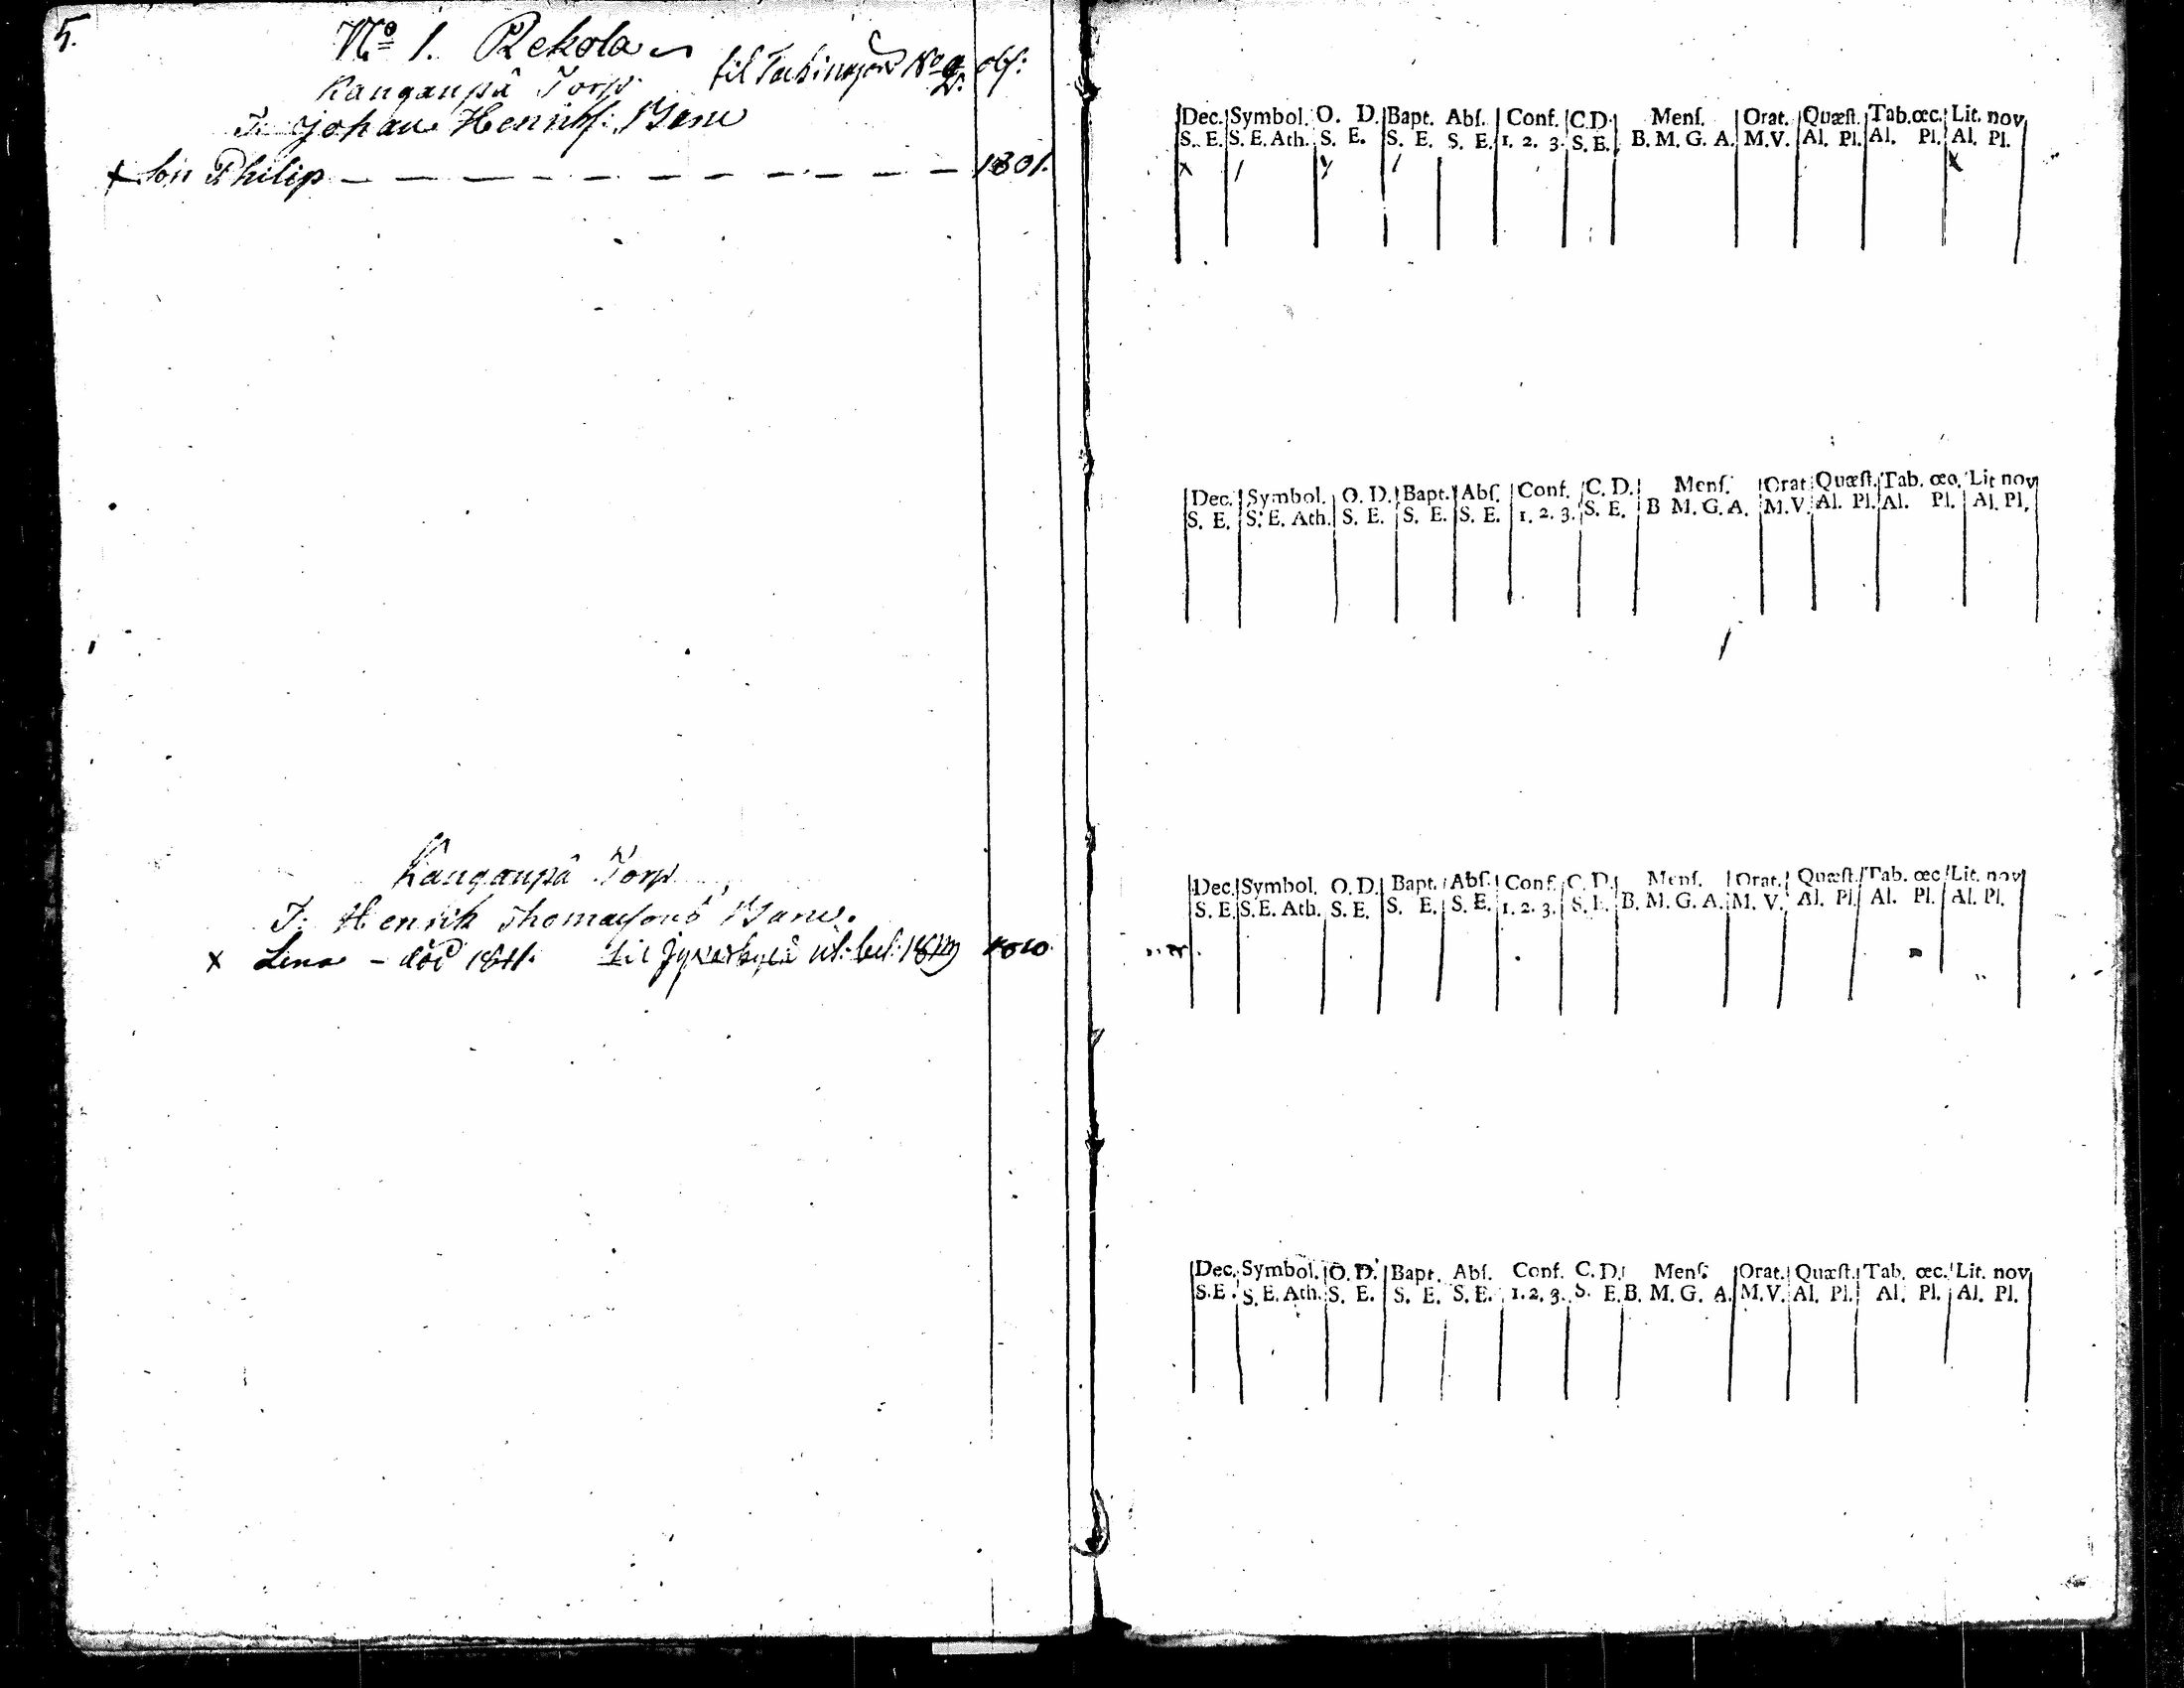 5.
No 1. Rekola
Kangaupå Torp til No obs:
T. Johan Henrikss: Barn
x Son Philip — — — — — — — — — — — — 1801.
Dec. Symbol. O. D. Bapt. Abſ. Conf. C.D. Menſ. Orat. Quæſt. Tab.œc. Lit. nov
S. E. S. E. Ath. S. E. S. E. S. E. 1. 2. 3. S. E. B. M. G. A. M.V. Al. Pl. Al. Pl. Al. Pl.
Dec. Symbol. O. D. Bapt. Abſ. Conf. C. D. Menſ. Orat. Quæſt. Tab. œo. Lit nov
S. E. S. E. Ath. S. E. S. E. S. E. 1. 2. 3. S. E. B M. G. A. M.V. Al. Pl. Al. Pl. Al. Pl.
Kangaupå Torp
T: Henrik Thomassons Barn.
x Lena - död 1811. til 1810
Dec. Symbol. O. D. Bapt. Abſ. Conf. C. D. Menſ. Orat. Quæſt. Tab. œc. Lit. nov
S. E. S. E. Ath. S. E. S. E. S. E. 1. 2. 3. S. E. B. M. G. A. M. V. Al. Pl. Al. Pl. Al. Pl.
Dec. Symbol. O. D. Bapt. Abſ. Conf. C. D. Menſ. Orat. Quæſt. Tab. œc. Lit. nov
S. E. S. E. Ath. S. E. S. E. S. E. 1. 2. 3. S. E. B. M. G. A. M.V. Al. Pl. Al. Pl. Al. Pl.